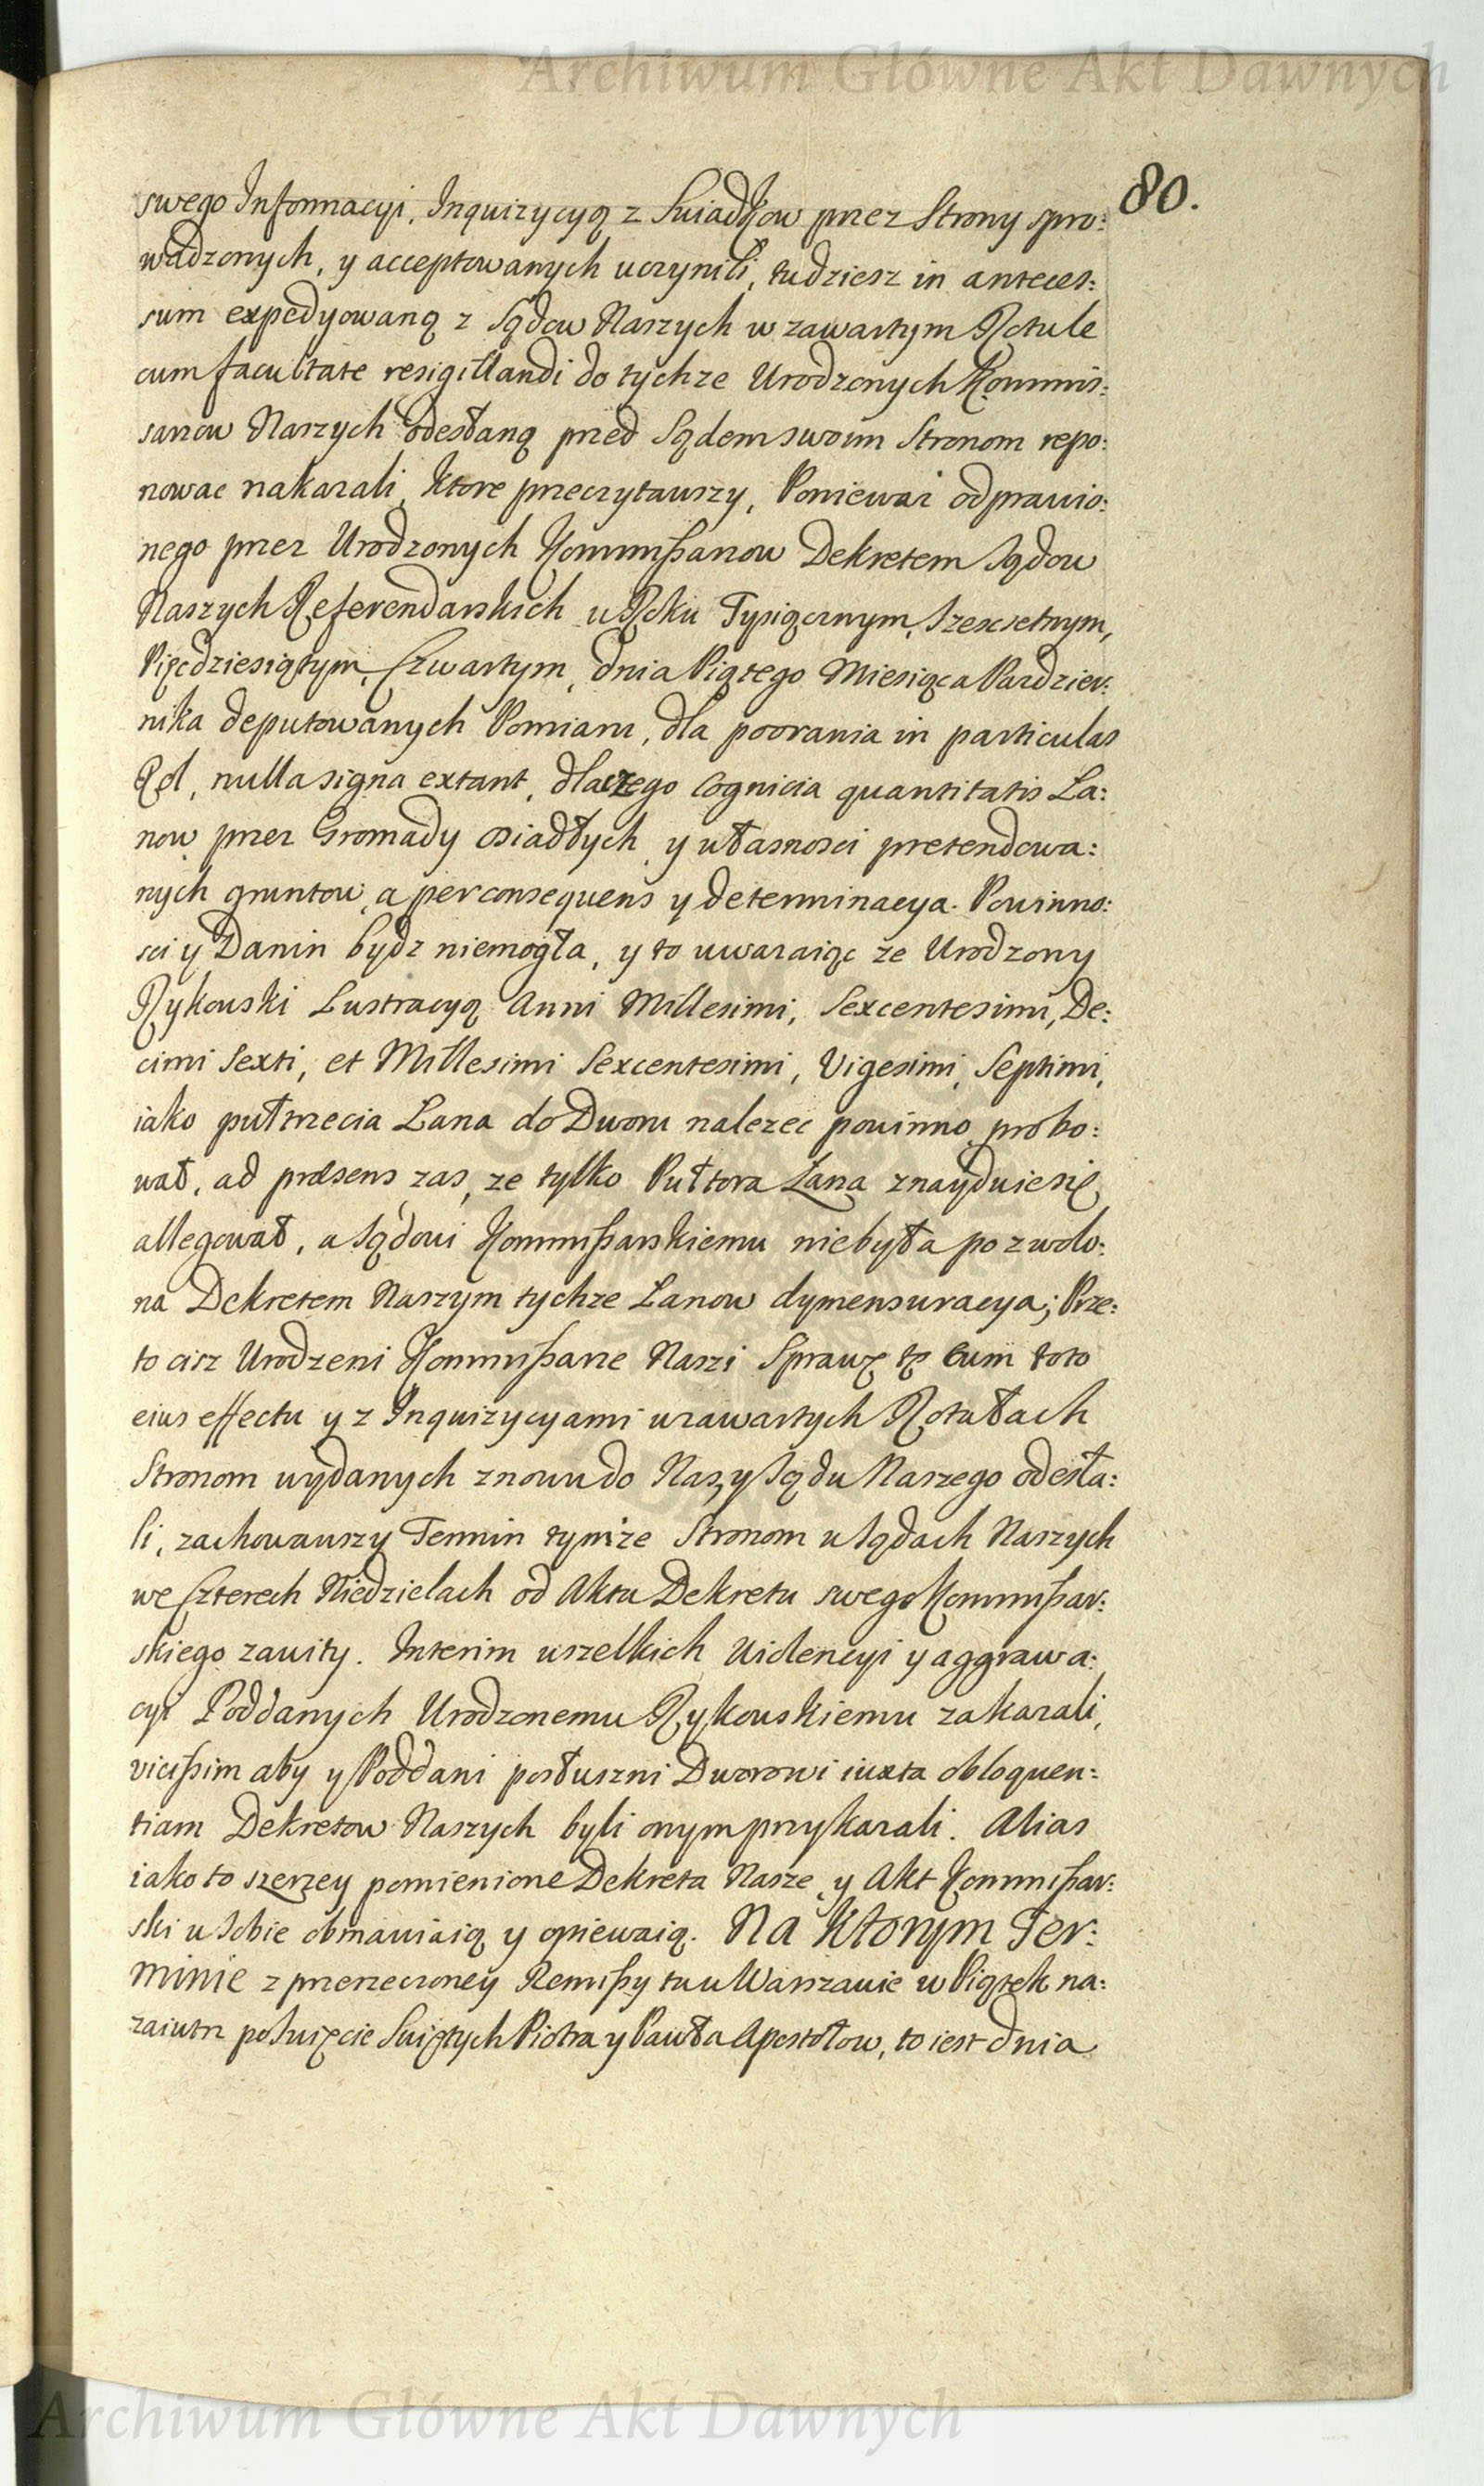 Archiwum Główne Akt Dawnych
80.
swego Informacyi, Inquizycyą z Swiadkow przez Strony spro:
wadzonych, y acceptowanych uczynili, tudziesz in anteces:
sum expedyowaną z Sądow Naszych w zawartym Rotule
cum facultate resigillandi do tychze Urodzonych Kommis:
sarzow Naszych odesłaną przed Sądem swoim Stronom repo:
nowac nakazali, ktore przeczytawszy, Poniewaz odprawio:
nego przez Urodzonych Kommißarzow Dekretem Sądow
Naszych Referendarskich w Roku Tysiącznym, Szescsetnym,
Pięcdziesiątym, Czwartym, dnia Piątego Miesiąca Pazdzier:
nika deputowanych Pomiaru, dla poorania in particulas
Rol, nulla signa extant, dlaczego Cognicia quantitatis La:
now przez Gromady osiadłych y własnosci pretendowa:
nych gruntow, a per consequens y determinacya Powinno:
sci y Danin bydz niemogła, y to uwazaiąc ze Urodzony
Rykowski Lustracyą Anni Millesimi, Sexcentesimi, De:
cimi Sexti, et Millesimi Sexcentesimi, Vigesimi, Septimi,
iako pułtrzecia Lana do Dworu nalezec powinno probo:
wał, ad præsens zas, ze tylko Pułtora Lana znayduie się
allegował, a Sądowi Kommißarskiemu niebyła pozwolo:
na Dekretem Naszym tychze Lanow dymensuracya; Prze:
to ciz Urodzeni Kommißarze Naszi Sprawę tę cum toto
eius effectu y z Inquizycyami w zawartych Rotułach
Stronom wydanych znowu do Nas, y Sądu Naszego odesła:
li, zachowawszy Termin tymze Stronom w Sądach Naszych
we Czterech Niedzielach od Aktu Dekretu swego Kommißar:
skiego zawity. Interim wszelkich Violencyi y aggrawa:
cyi Poddanych Urodzonemu Rykowskiemu zakazali,
vicißim aby y Poddani posłuszni Dworowi iuxta obloquen:
tiam Dekretow Naszych byli onym przykazali. Alias
iako to szerzey pomienione Dekreta Nasze, y Akt Kommißar:
ski w sobie obmawiaią y opiewaią. Na Ktorym Ter:
minie z przerzeczoney Remißy tu w Warszawie w Piątek na:
zaiutrz po Swięcie Swiętych Piotra y Pawła Apostołow, to iest dnia
Archiwum Główne Akt Dawnych